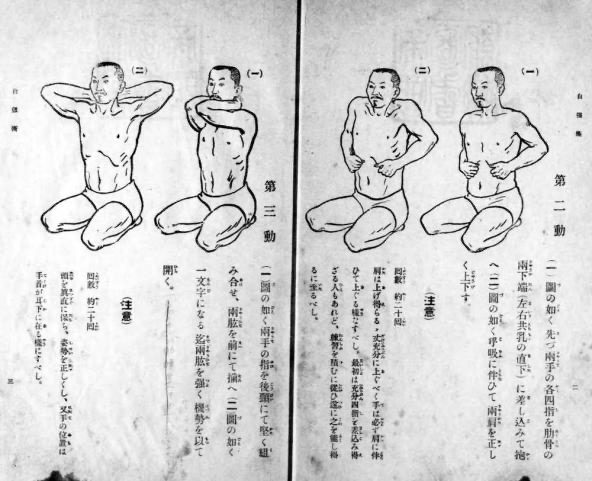 自彊術
第二動
(一)
(二)
(一)圖の如く先づ兩手の各四指を肋骨の
兩下端(左右共乳の直下)に差し込みて抱
へ(二)圖の如く呼吸に伴ひて兩肩を正し
く上下す。
(注意)
回數 約二十回
肩は上げ得らるゝ丈充分に上ぐべく手は必ず肩に伴
ひて上ぐる樣にすべし。最初は充分四指を差込み得
ざる人もあれど、練習を積むに從ひ遂に之を能し得
るに至るべし。
二
第三動
(一)
(二)
(一)圖の如く兩手の指を後頸にて堅く組
み合せ、兩肱を前にて揃へ(二)圖の如く
一文字になる迄兩肱を強く機勢を以て
開く。
(注意)
回數 約二十回
頭を眞直に保ち、姿勢を正しくし、叉手の位置は
手首が耳下に在る樣にすべし。
自彊術
三